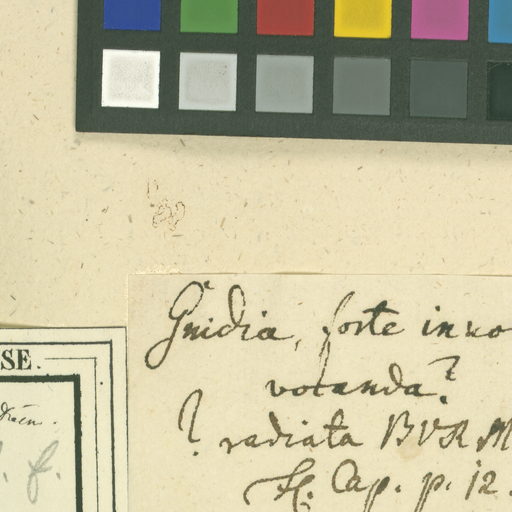 Gnidia, forte invo
vocanda?
? radiata BUR M
Fl. Cap. p. 12.
SE.
f.